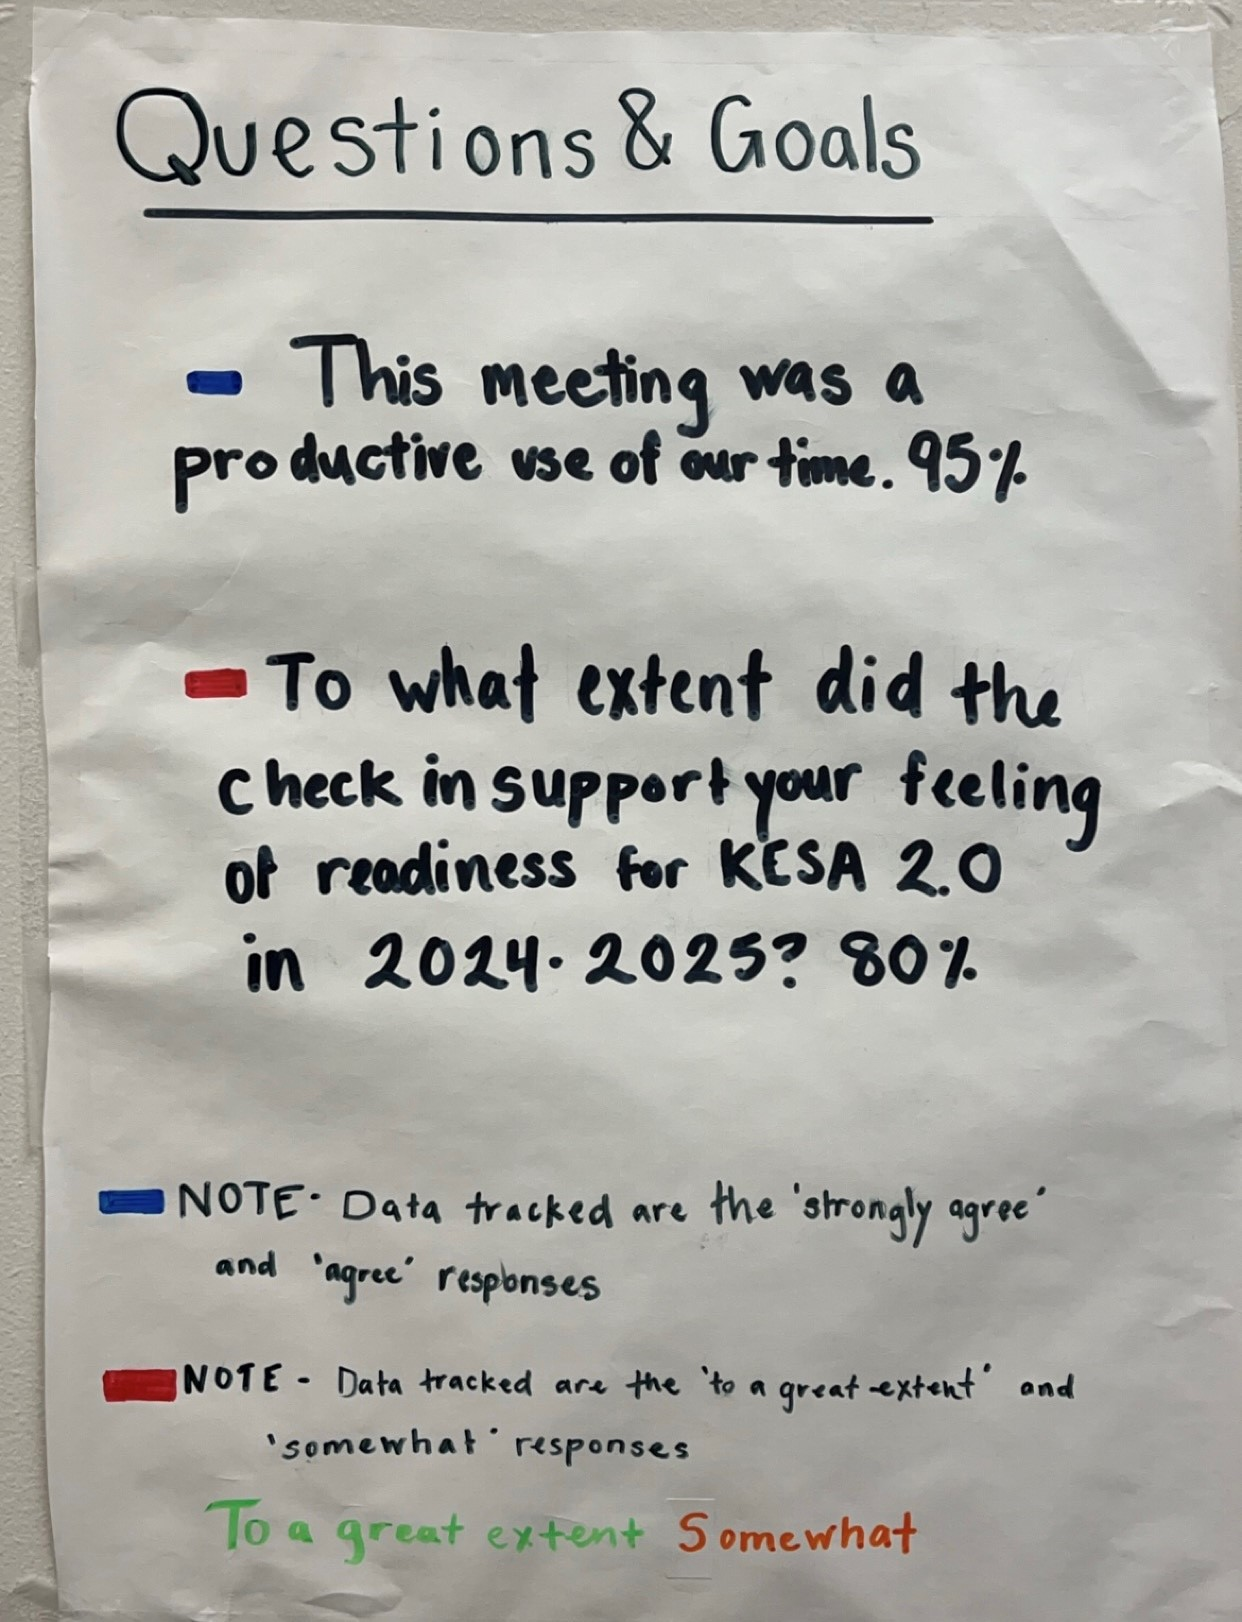 Questions & Goals
This meeting was a
productive use of our time. 95%
To what extent did the
check in support your feeling
of readiness for KESA 2.0
in 2024-2025? 80%
NOTE- Data tracked are the 'strongly agree'
and 'agree' responses
NOTE - Data tracked are the 'to a great extent' and
'somewhat' responses
To a great extent Somewhat